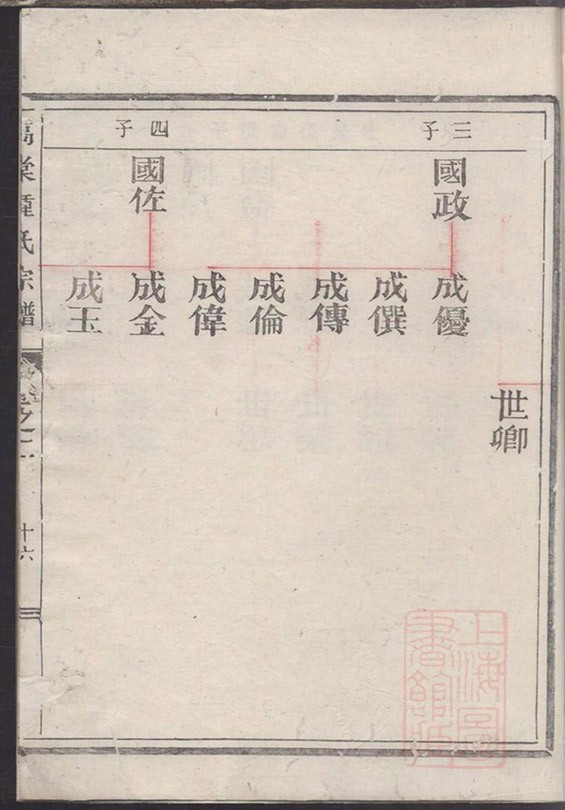 世卿
三子
國政
成優
成僎
成傳
成倫
成偉
四子
國佐
成金
成玉
氏宗譜
十六
上海圖書館藏